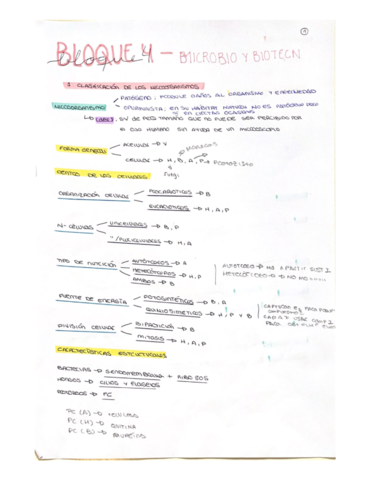 BLOQUE 4 - MICROBIO Y BIOTECN
1. CLASIFICACIÓN DE LOS MICROORGANISMOS
PATÓGENO: PRODUCE DAÑOS AL ORGANISMO Y ENFERMEDAD
MICROORGANISMO
OPORTUNISTA: EN SU HÁBITAT NORMAL NO ES PATÓGENO PERO
EN CIERTAS OCASIONES
SV DE PEQ TAMAÑO QUE NO PUEDE SER PERCIBIDO POR
A OJO HUMANO SIN AYUDA DE UN MICROSCOPIO
FORMA GENERAL
ACELULAR → V
CELULAR → H, B, A, P →
fungi
DENTRO DE LAS CELULARES
ORGANIZACIÓN CELULAR
PROCARIOTICOS → B
EUCARIOTICOS → H, A, P
Nº CELULAS
UNICELULARES → B, P
"/PLURICELULARES → H, A
TIPO DE NUTRICIÓN
AUTÓTROFOS → A
HETERÓTROFOS → H, P
AMBOS → B
AUTÓTROFO → MO A PARTIR SUST I
HETERÓTROFO → MO
FUENTE DE ENERGÍA
FOTOSINTÉTICOS → B, A
QUIMIOSINTETICOS → H, P Y B
DIVISIÓN CELULAR
BIPARTICIÓN → B
MITOSIS → H, A, P
CARACTERÍSTICAS ESTRUCTURALES
BACTERIAS → + RIBO 70S
→ CILIOS Y FLAGELOS
→ PC
PC (A) → CELULOSA
PC (H) → QUITINA
PC (B) → MUREINA